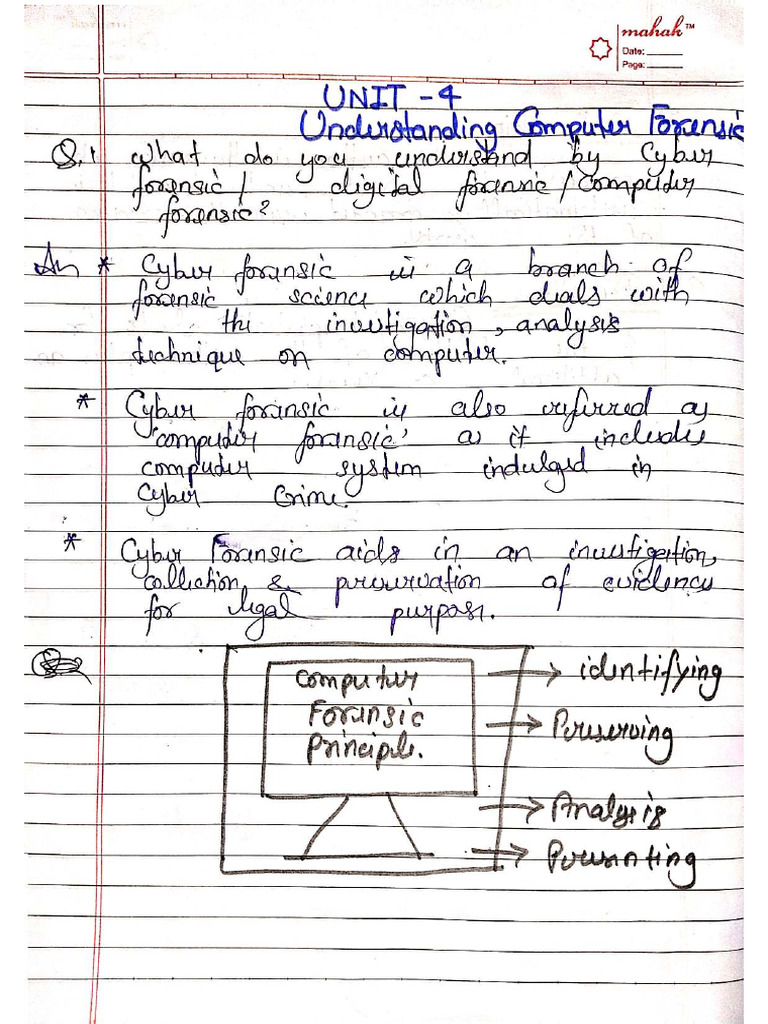 mahak™
Date:
Page:
UNIT - 4
Understanding Computer Forensic
Q.1 What do you understand by Cyber
forensic / digital forensic / Computer
forensic?
An * Cyber forensic is a branch of
forensic science which deals with
the investigation, analysis
technique on computer.
* Cyber forensic is also referred as
'computer forensic' as it includes
computer system indulged in
Cyber Crime.
* Cyber Forensic aids in an investigation,
collection & preservation of evidence
for legal purpose.
Computer
Forensic
Principle.
→ identifying
→ Preserving
→ Analysis
→ Presenting